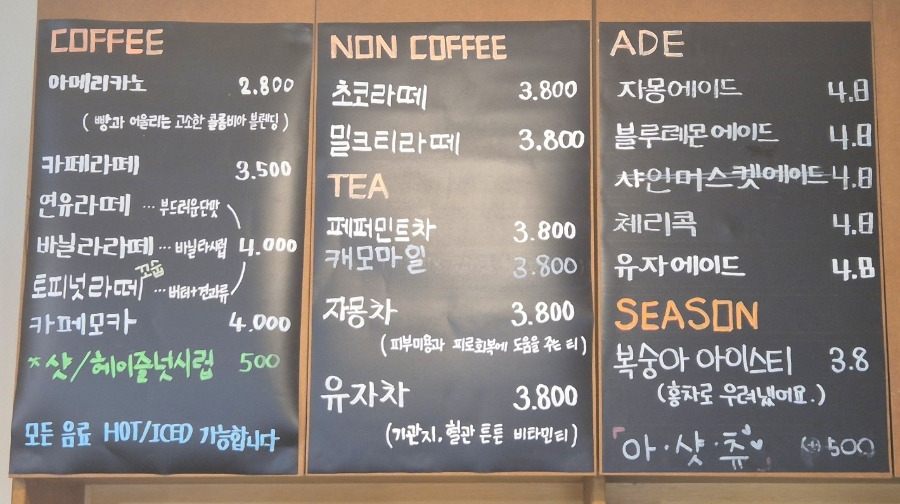 COFFEE
아메리카노 2.800
( 빵과 어울리는 고소한 콜롬비아 블렌딩 )
카페라떼 3.500
연유라떼 ... 부드러운단맛
바닐라라떼 ... 바닐라시럽 4.000
꼬숩
토피넛라떼 ... 버터+견과류
카페모카 4.000
*샷/헤이즐넛시럽 500
모든 음료 HOT/ICED 가능합니다
NON COFFEE
초코라떼 3.800
밀크티라떼 3.800
TEA
페퍼민트차 3.800
캐모마일 3.800
자몽차 3.800
(피부미용과 피로회복에 도움을 주는 티)
유자차 3.800
(기관지, 혈관 튼튼 비타민티)
ADE
자몽에이드 4.8
블루레몬에이드 4.8
샤인머스켓에이드 4.8
체리콕 4.8
유자에이드 4.8
SEASON
복숭아 아이스티 3.8
(홍차로 우려냈어요.)
아·샷·츄 (+)500